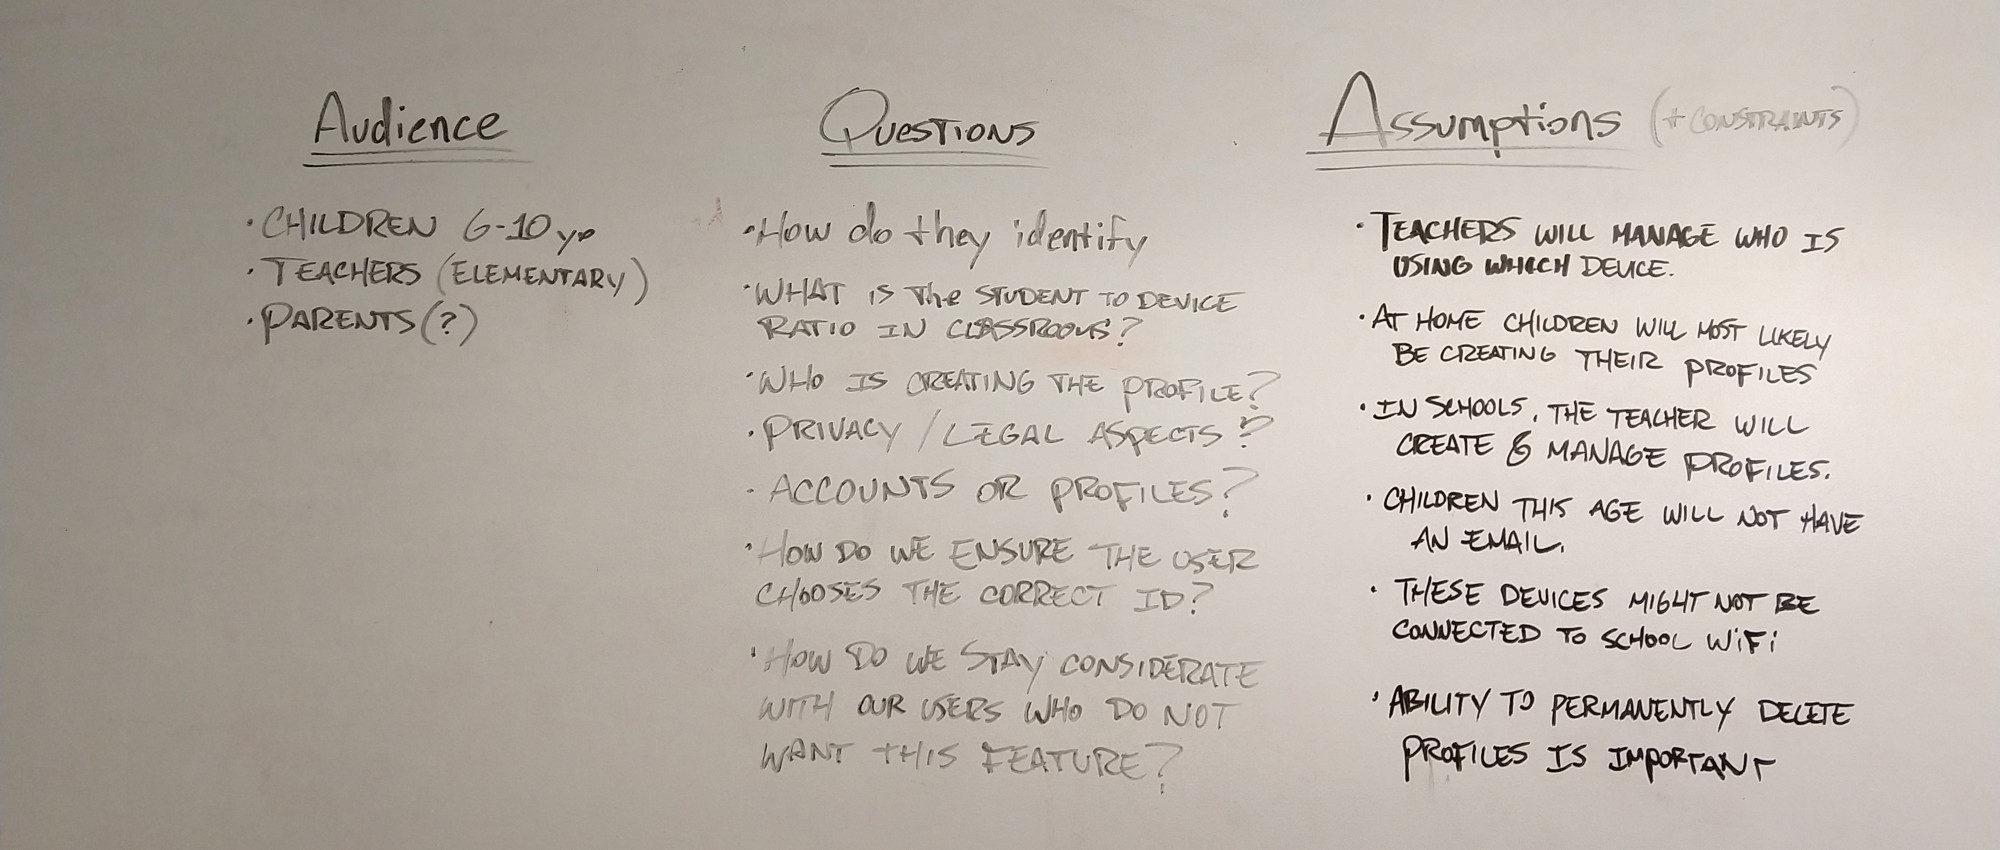 Audience
· CHILDREN 6-10 yo
· TEACHERS (ELEMENTARY)
· PARENTS (?)
QUESTIONS
· How do they identify
· WHAT IS The STUDENT TO DEVICE
RATIO IN CLASSROOMS?
· WHO IS CREATING THE PROFILE?
· PRIVACY / LEGAL ASPECTS?
· ACCOUNTS OR PROFILES?
· HOW DO WE ENSURE THE USER
CHOOSES THE CORRECT ID?
· HOW DO WE STAY CONSIDERATE
WITH OUR USERS WHO DO NOT
WANT THIS FEATURE?
Assumptions (+ CONSTRAINTS)
· TEACHERS WILL MANAGE WHO IS
USING WHICH DEVICE.
· AT HOME CHILDREN WILL MOST LIKELY
BE CREATING THEIR PROFILES
· IN SCHOOLS, THE TEACHER WILL
CREATE & MANAGE PROFILES.
· CHILDREN THIS AGE WILL NOT HAVE
AN EMAIL.
· THESE DEVICES MIGHT NOT BE
CONNECTED TO SCHOOL WiFi
· ABILITY TO PERMANENTLY DELETE
PROFILES IS IMPORTANT